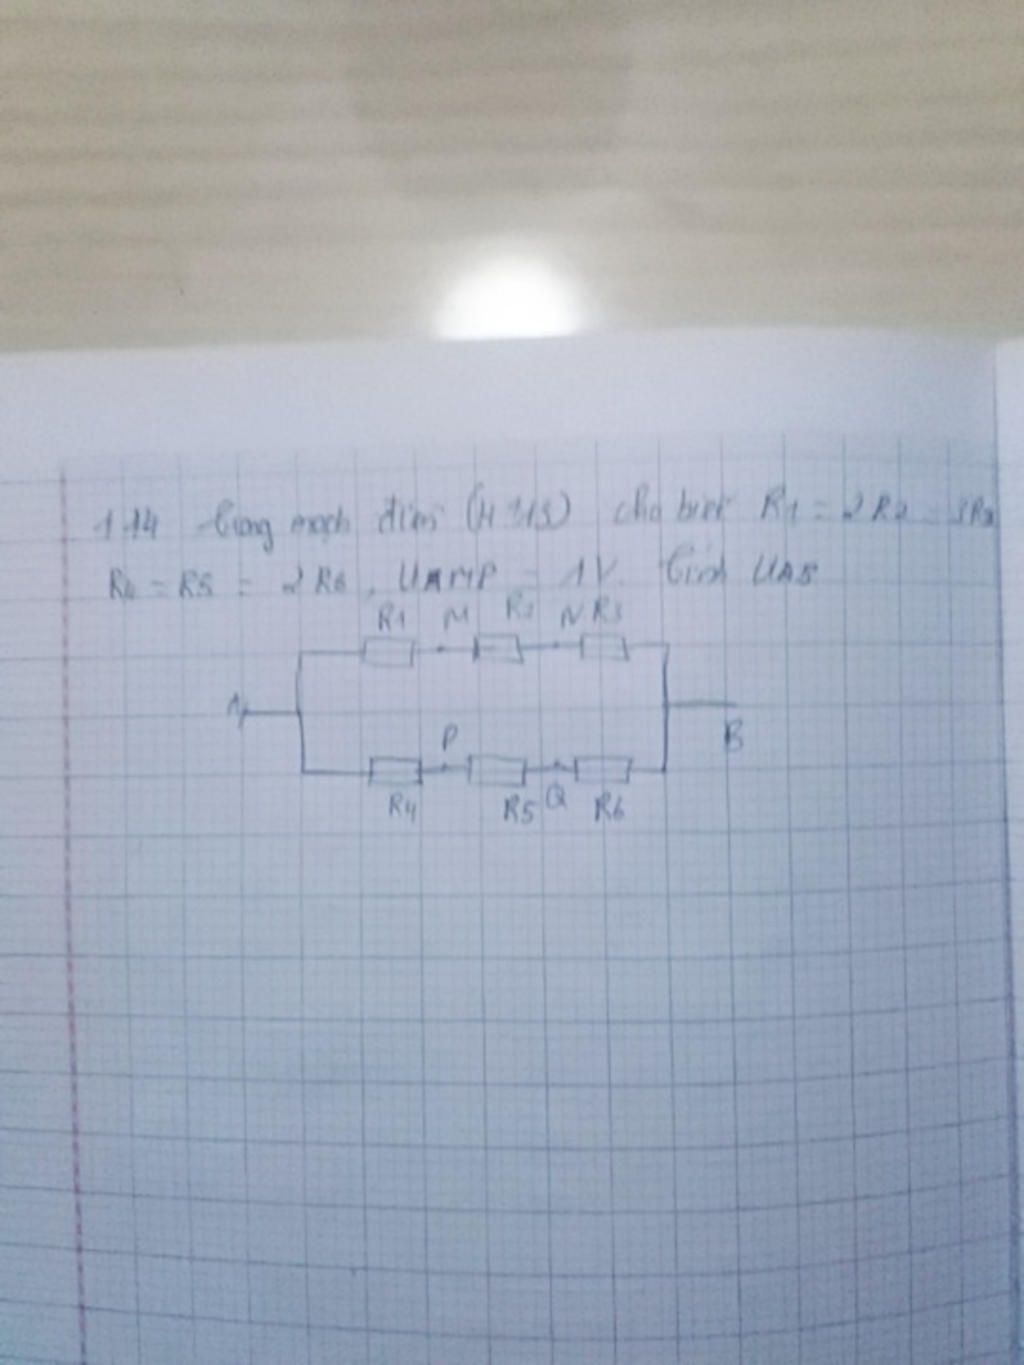 1.14 Trong mạch điện (H 1.15) cho biết R1 = 2R2 = 3R3
R4 = R5 = 2R6, UMP = 1V. Tính UAB
R1 M R2 N R3
A
P
B
R4 R5 Q R6